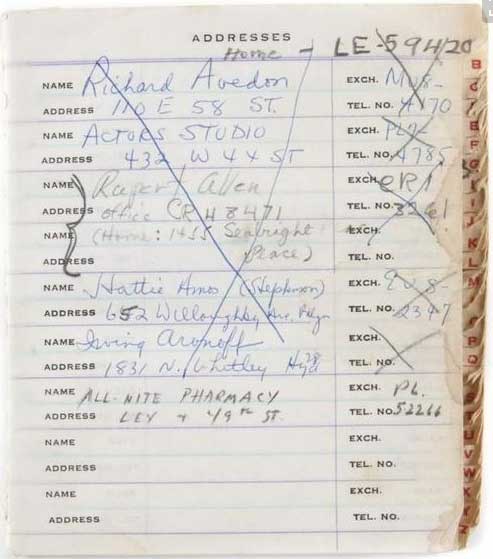 ADDRESSES
Home - LE-5 9420
NAME Richard Avedon EXCH. MU8-
ADDRESS 110 E 58 ST. TEL. NO. 4170
NAME ACTORS STUDIO EXCH. PL7-
ADDRESS 432 W 44 ST TEL. NO. 4785
NAME Rupert Allen EXCH. CR1
ADDRESS office CR 48471 TEL. NO. 3261
NAME (Home: 1455 Seabright EXCH.
ADDRESS Place) TEL. NO.
NAME Hattie Amos (Stephenson) EXCH. GU8-
ADDRESS 652 Willoughby Ave Bklyn TEL. NO. 2347
NAME Irving Aronoff EXCH.
ADDRESS 1831 N. Whitley Hyd TEL. NO.
NAME ALL-NITE PHARMACY EXCH. PL.
ADDRESS LEX + 49th ST. TEL. NO. 52266
NAME EXCH.
ADDRESS TEL. NO.
NAME EXCH.
ADDRESS TEL. NO.
B
C
E
F
G
J
K
L
M
P
Q
S
T
U
V
W
X
Z